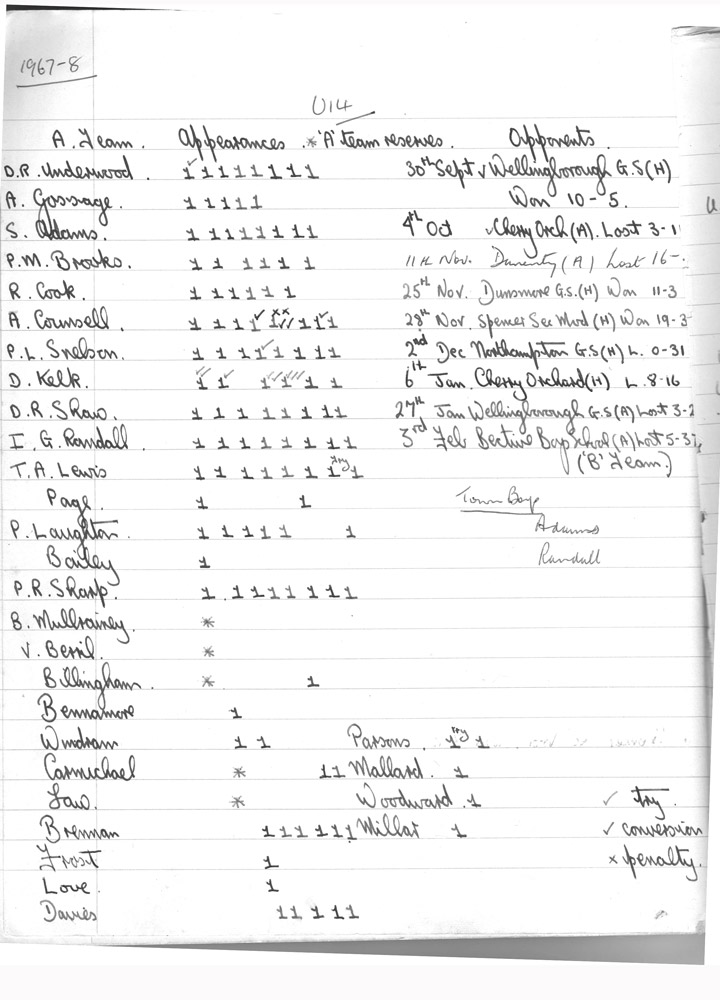 1967-8
U14
A. Team. Appearances *'A' team reserves. Opponents.
D.R. Underwood. 1 1 1 1 1 1 1 1 30th Sept v Wellingborough G.S (H)
A. Gossage. 1 1 1 1 1 Won 10-5.
S. Adams. 1 1 1 1 1 1 1 1 4th Oct v Cherry Orch (A). Lost 3-1
P.M. Brooks. 1 1 1 1 1 1 11th Nov. (A) Lost 16-
R. Cook. 1 1 1 1 1 1 25th Nov. Dunsmore G.S. (H) Won 11-3
A. Counsell. 1 1 1 1 ✓ 1 ×× ✓✓ 1 1 ✓ 1 28th Nov. Spencer Sec Mod (H) Won 19-3
P.L. Snelson. 1 1 1 1 ✓ 1 1 1 1 2nd Dec Northampton G.S (H) L. 0-31
D. Kelk. 1 1 1 1 1 1 1 6th Jan. Cherry Orchard (H) L. 8-16
D.R. Shaw. 1 1 1 1 1 1 1 1 27th Jan Wellingborough G.S (A) Lost 3-2
I. G. Randall. 1 1 1 1 1 1 1 1 3rd Feb Bective Boys School (A) Lost 5-3
T.A. Lewis 1 1 1 1 1 1 1 try 1 ('B' Team.)
Page. 1 1 Town Boys
P. Laughton. 1 1 1 1 1 1 Adams
Bailey 1 Randall
P.R. Sharp. 1 1 1 1 1 1 1 1
B. Mullrainey. *
V. Beril. *
Billingham. * 1
Bennamore 1
Windram 1 1 Parsons. 1 try 1
Carmichael * 1 1 Mallard. 1
Law. * Woodward. 1 ✓ try.
Brennan 1 1 1 1 1 1 Millar 1 ✓ conversion
Frost 1 × penalty.
Love. 1
Davies 1 1 1 1 1